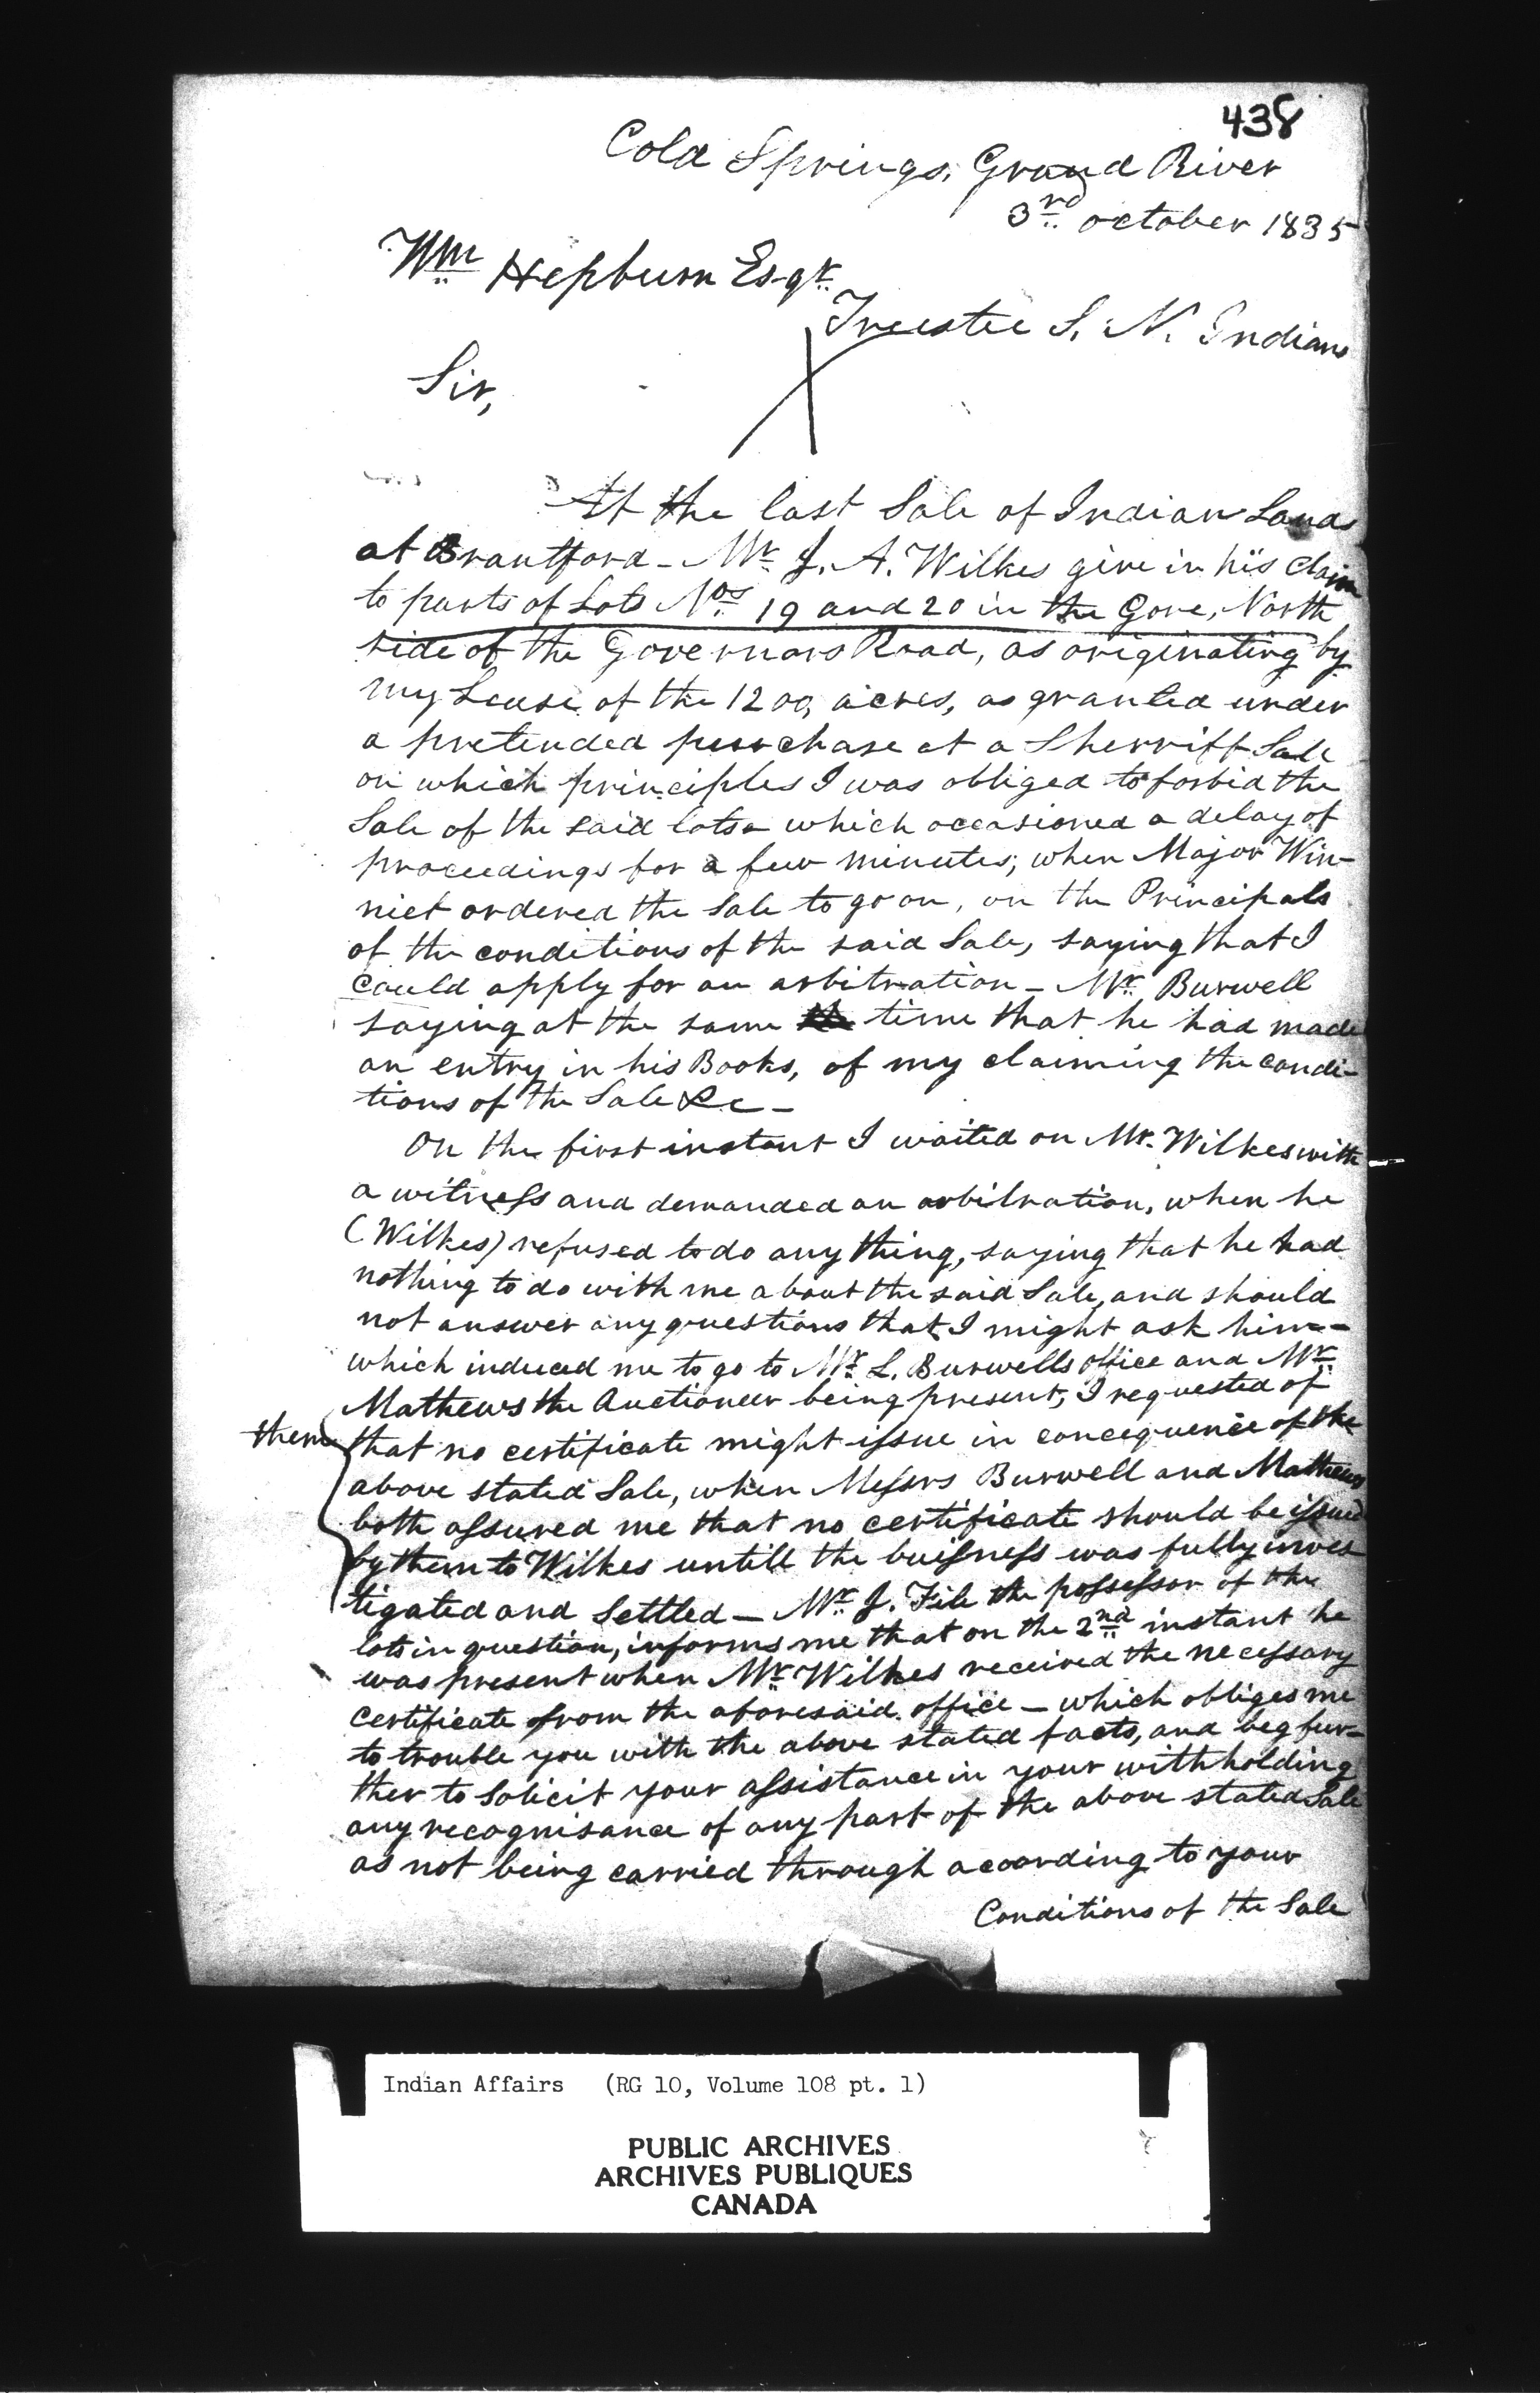 438
Cold Springs, Grand River
3rd october 1835
Wm Hepburn Esqr
Trustee S. N. Indians
Sir,
At the last Sale of Indian Lands
at Brantford - Mr J. A. Wilkes give in his claim
to parts of Lots Nos 19 and 20 in the Gore, North
side of the Governors Road, as originating by
my Lease of the 1200, acres, as granted under
a pretended purchase at a Sherriff Sale
on which principles I was obliged to forbid the
Sale of the said lots which occasioned a delay of
proceedings for a few minutes; when Major Win-
niet ordered the Sale to go on, on the Principals
of the conditions of the said Sale, saying that I
could apply for an arbitration - Mr Burwell
saying at the same time that he had made
an entry in his Books, of my claiming the condi-
tions of the Sale &c -
On the first instant I waited on Mr. Wilkes with
a witness and demanded an arbitration, when he
(Wilkes) refused to do any thing, saying that he had
nothing to do with me about the said Sale, and should
not answer any questions that I might ask him -
which induced me to go to Mr L. Burwells office and Mr
Mathews the Auctioneer being present, I requested of
them that no certificate might issue in concequence of the
above stated Sale, when Messrs Burwell and Mathews
both assured me that no certificate should be issued
by them to Wilkes untill the buisness was fully inves
tigated and Settled - Mr J. File the possessor of the
lots in question, informs me that on the 2nd instant he
was present when Mr Wilkes received the necessary
certificate from the aforesaid office - which obliges me
to trouble you with the above stated facts, and beg fur-
ther to Solicit your assistance in your withholding
any recognisance of any part of the above stated Sale
as not being carried through acoording to your
Conditions of the Sale
Indian Affairs (RG 10, Volume 108 pt. 1)
PUBLIC ARCHIVES
ARCHIVES PUBLIQUES
CANADA